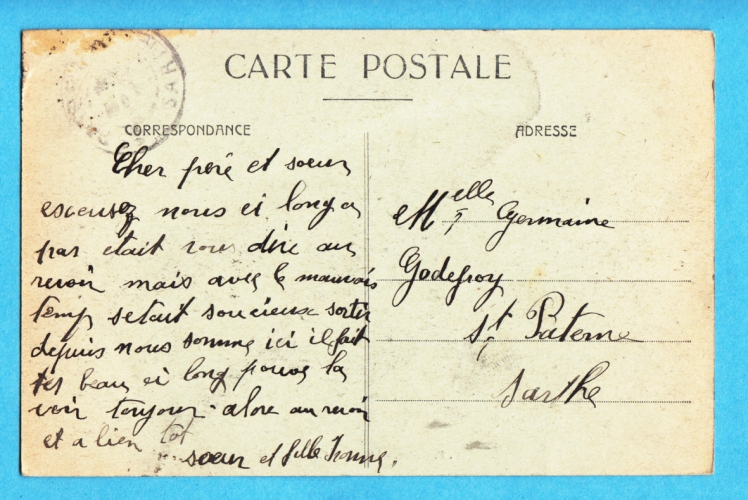 CARTE POSTALE
CORRESPONDANCE
ADRESSE
Cher père et soeur
escusez nous ci long a
pas etait vous dire au
revoir mais avec le mauvais
temp setait soucieux sortir
depuis nous somme ici il fait
tes beau ci long pouvos la
voir toujour. alore au revoir
et a bien tot
soeur et fille
Melle Germaine
Godefroy
St Paterne
Sarthe